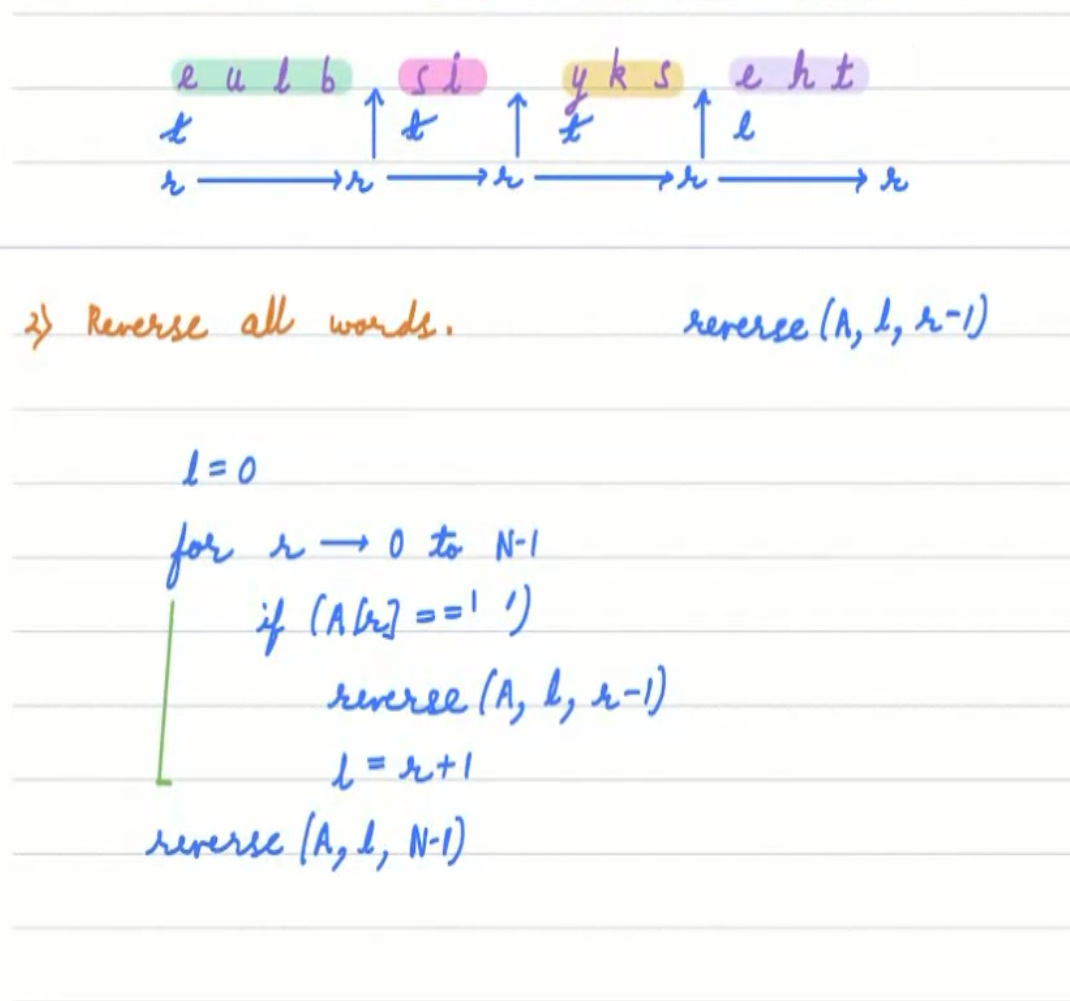 e u l b si y k s e h t
↑ ↑ ↑
l l l l
r → r → r → r → r
2) Reverse all words. reverse (A, l, r-1)
l = 0
for r → 0 to N-1
if (A[r] == ' ')
reverse (A, l, r-1)
l = r+1
reverse (A, l, N-1)